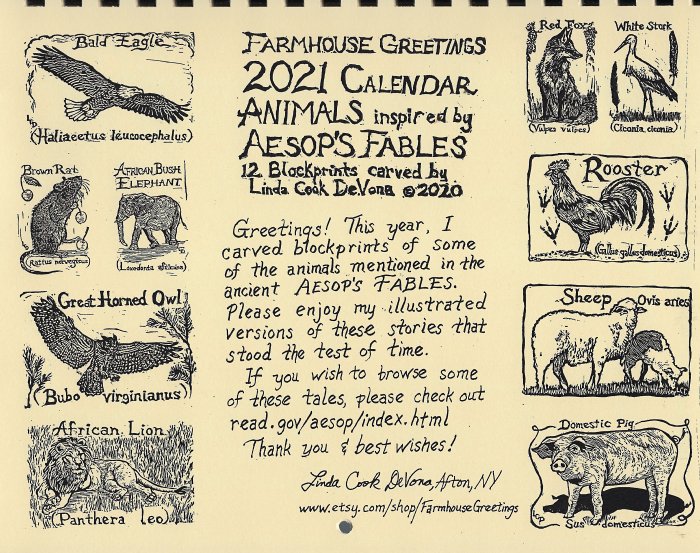 Bald Eagle
(Haliaeetus leucocephalus)
Brown Rat
(Rattus norvegicus)
AFRICAN BUSH
ELEPHANT
(Loxodonta africana)
Great Horned Owl
(Bubo virginianus)
African Lion
(Panthera leo)
FARMHOUSE GREETINGS
2021 CALENDAR
ANIMALS inspired by
AESOP'S FABLES
12 Blockprints carved by
Linda Cook DeVona © 2020
Greetings! This year, I
carved blockprints of some
of the animals mentioned in the
ancient AESOP'S FABLES.
Please enjoy my illustrated
versions of these stories that
stood the test of time.
If you wish to browse some
of these tales, please check out
read.gov/aesop/index.html
Thank you & best wishes!
Linda Cook DeVona, Afton, NY
www.etsy.com/shop/FarmhouseGreetings
Red Fox
(Vulpes vulpes)
White Stork
(Ciconia ciconia)
Rooster
(Gallus gallus domesticus)
Sheep Ovis aries
Domestic Pig
Sus domesticus